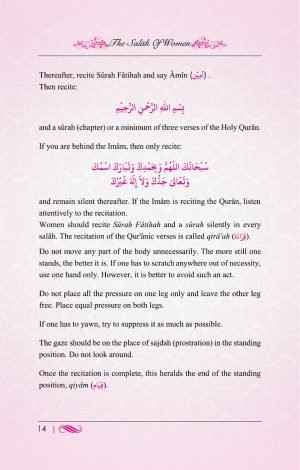 The Salāh Of Women
Thereafter, recite Sūrah Fātihah and say Āmīn (اٰمِيْن) .
Then recite:
بِسْمِ اللهِ الرَّحْمٰنِ الرَّحِيْمِ
and a sūrah (chapter) or a minimum of three verses of the Holy Qurān.
If you are behind the Imām, then only recite:
سُبْحَانَكَ اللّٰهُمَّ وَبِحَمْدِكَ وَتَبَارَكَ اسْمُكَ
وَتَعَالىٰ جَدُّكَ وَلَآ إِلٰهَ غَيْرُكَ
and remain silent thereafter. If the Imām is reciting the Qurān, listen
attentively to the recitation.
Women should recite Sūrah Fātihah and a sūrah silently in every
salāh. The recitation of the Qur'ānic verses is called qirā'ah (قِرَاءَة).
Do not move any part of the body unnecessarily. The more still one
stands, the better it is. If one has to scratch anywhere out of necessity,
use one hand only. However, it is better to avoid such an act.
Do not place all the pressure on one leg only and leave the other leg
free. Place equal pressure on both legs.
If one has to yawn, try to suppress it as much as possible.
The gaze should be on the place of sajdah (prostration) in the standing
position. Do not look around.
Once the recitation is complete, this heralds the end of the standing
position, qiyām (قِيَام).
14 |